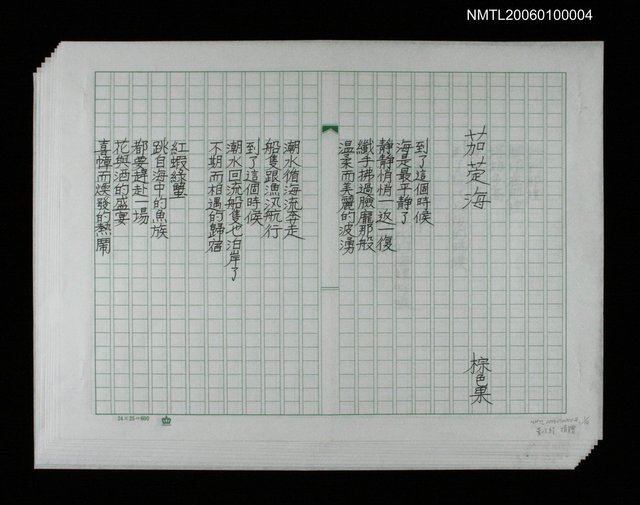 NMTL20060100004
茄萣海
棕色果
到了這個時候
海是最平靜了
靜靜悄悄一返一復
纖手拂過臉龐那般
溫柔而美麗的波湧
潮水循海流奔走
船隻跟漁汛航行
到了這個時候
潮水回流船隻也泊岸了
不期而相遇的歸宿
紅蝦綠蟹
跳自海中的魚族
都要趕赴一場
花與酒的盛宴
喜悼而煥發的熱鬧
24×25=600